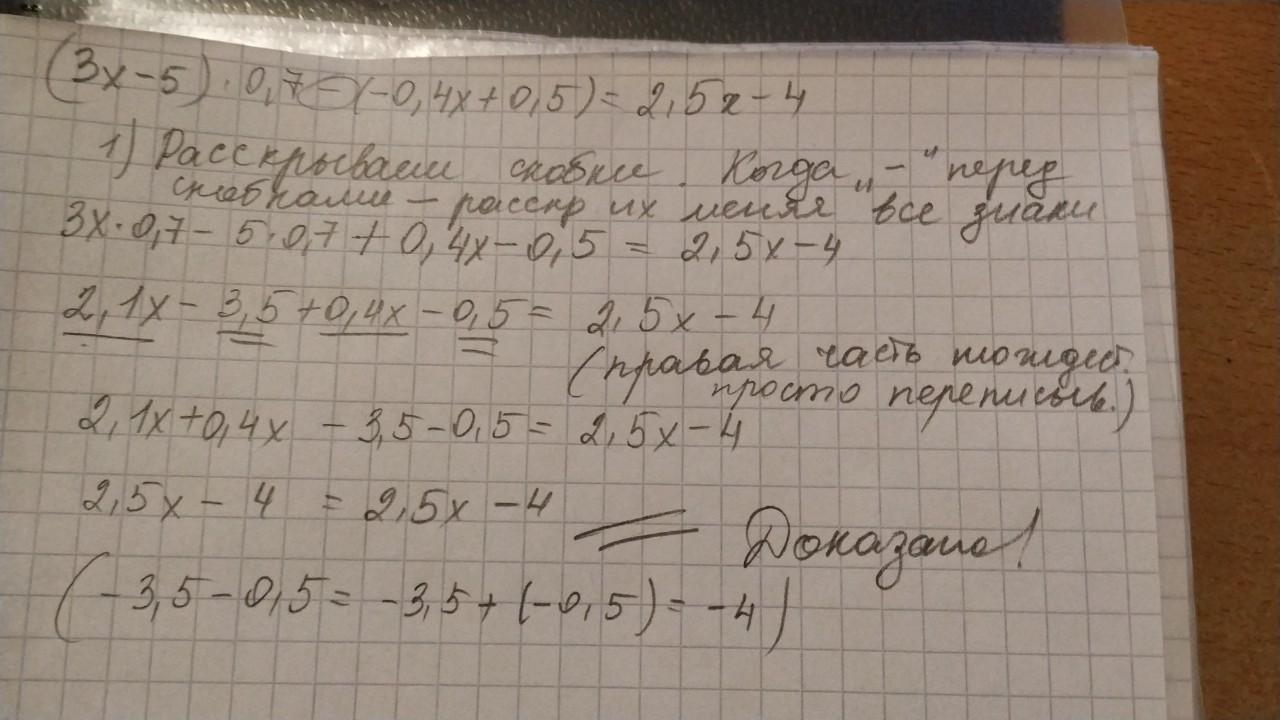 (3x-5)·0,7-(-0,4x+0,5)=2,5x-4
1) Расскрываем скобки. Когда „-" перед
скобками - расскр их меняя все знаки
3x·0,7-5·0,7+0,4x-0,5=2,5x-4
2,1x-3,5+0,4x-0,5=2,5x-4
(правая часть тождест.
просто переписыв.)
2,1x+0,4x-3,5-0,5=2,5x-4
2,5x-4=2,5x-4
Доказано!
(-3,5-0,5=-3,5+(-0,5)=-4)